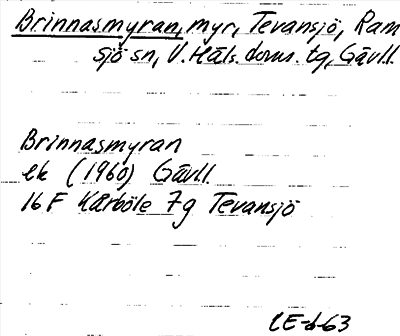 Brinnasmyran, myr, Tevansjö, Ram
sjö sn, V. Häls. doms. tg, Gävll.
Brinnasmyran
ek (1960) Gävll.
16 F Kårböle 7g Tevansjö
CE-d-63